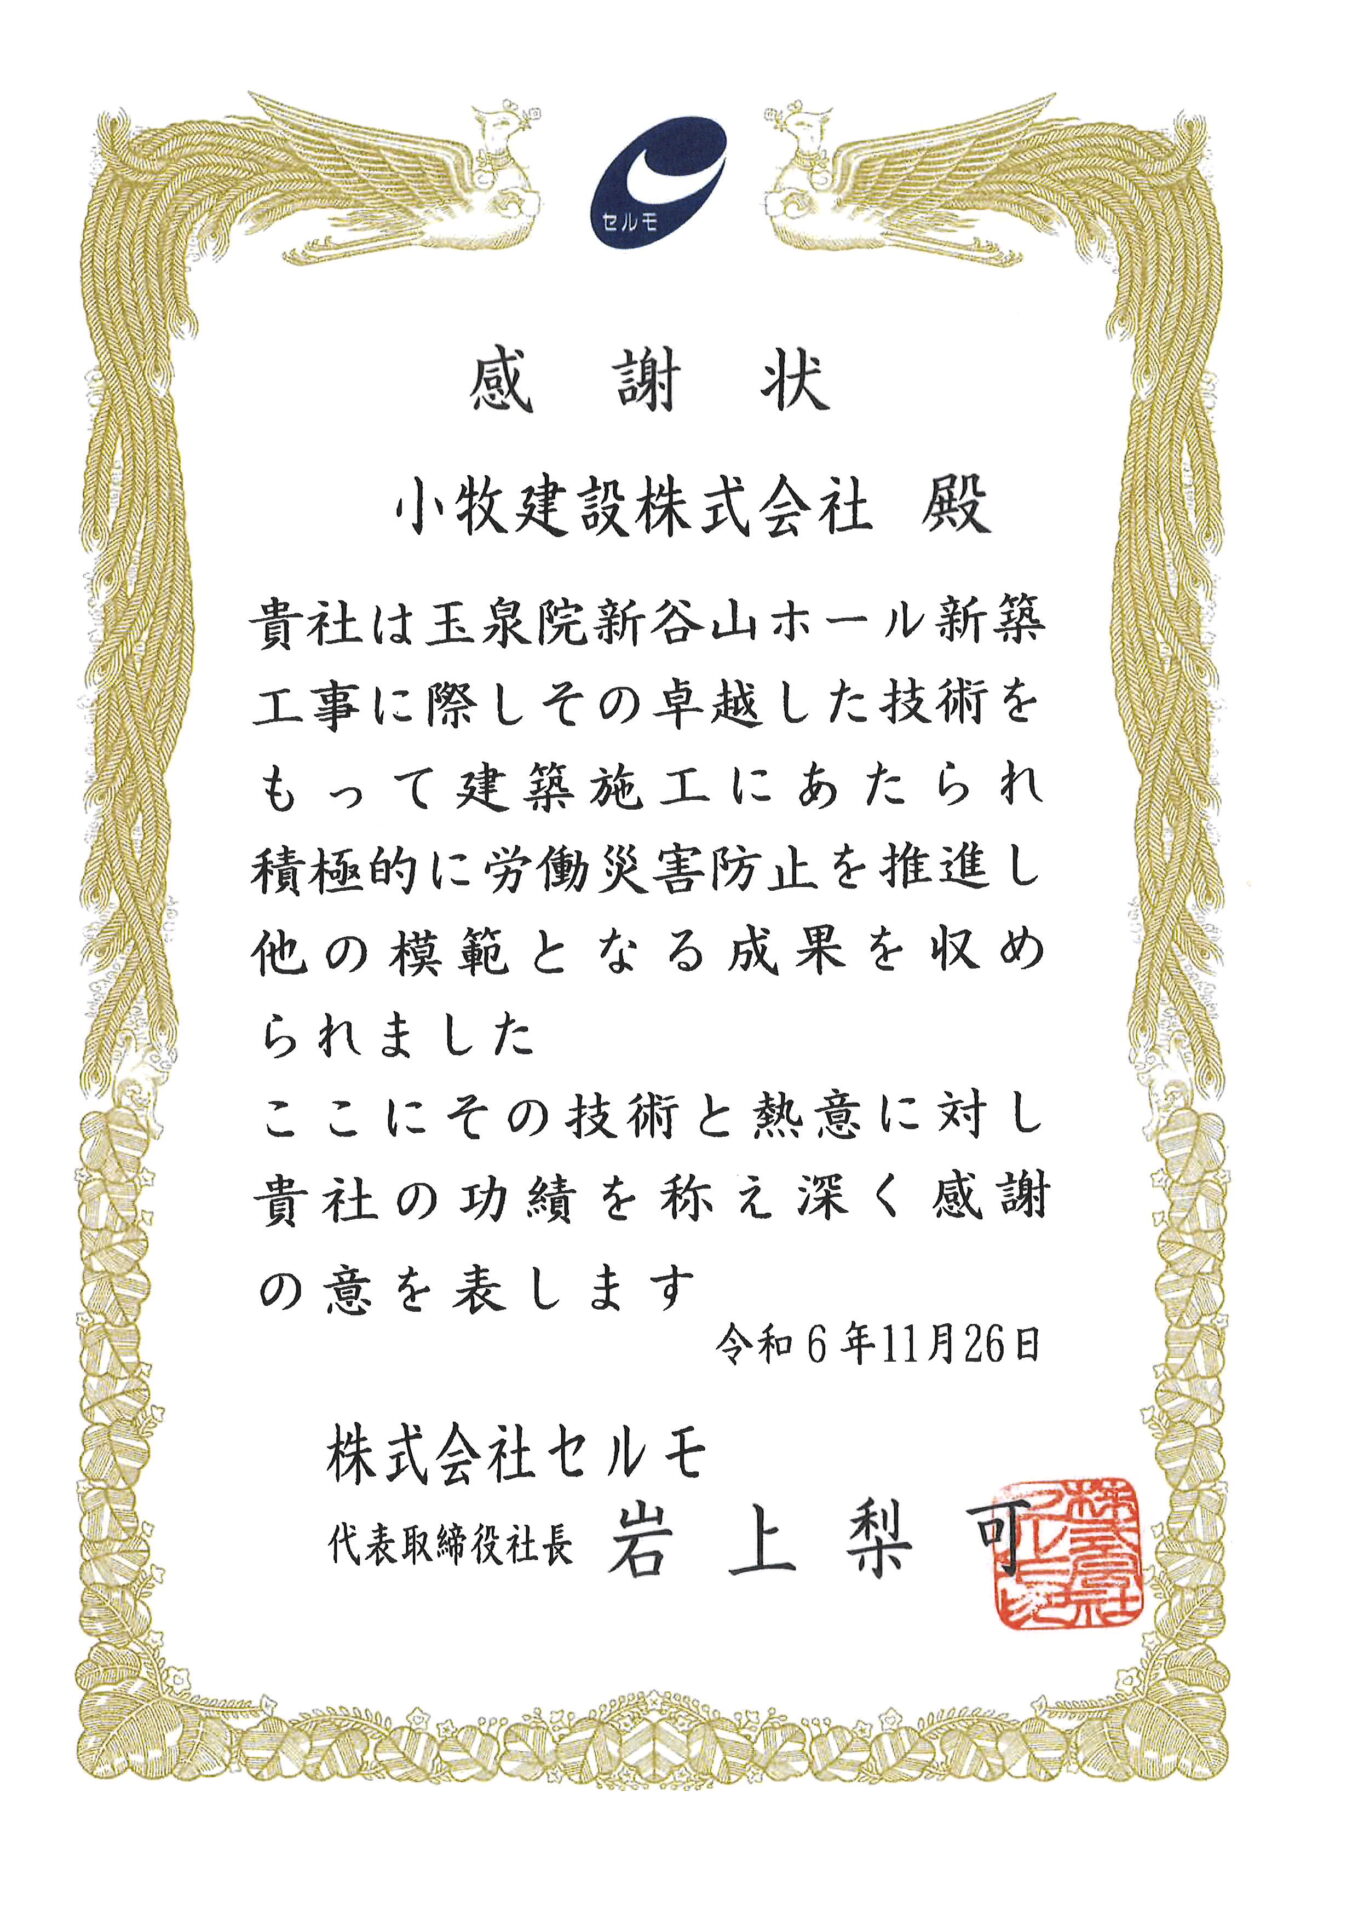 セルモ
感謝状
小牧建設株式会社 殿
貴社は玉泉院新谷山ホール新築
工事に際しその卓越した技術を
もって建築施工にあたられ
積極的に労働災害防止を推進し
他の模範となる成果を収め
られました
ここにその技術と熱意に対し
貴社の功績を称え深く感謝
の意を表します
令和6年11月26日
株式会社セルモ
代表取締役社長 岩上梨可
株式会社